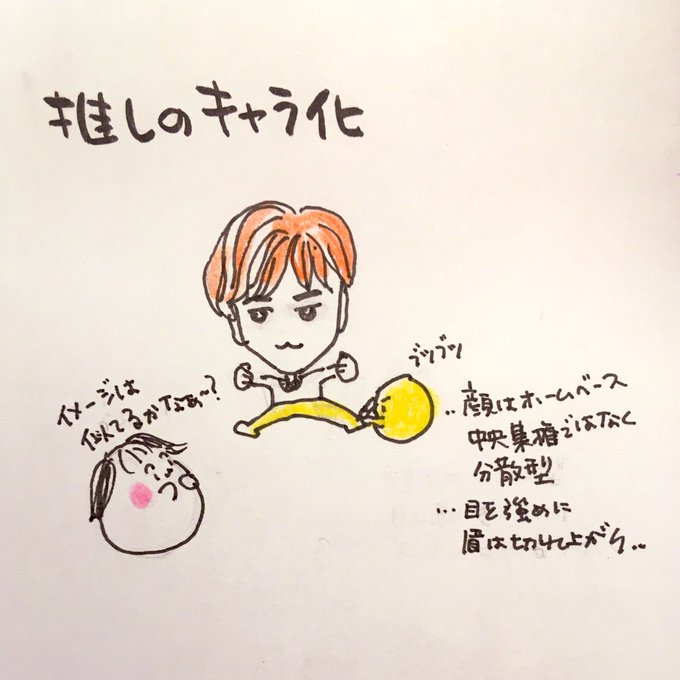 推しのキャラ化
ブツブツ
イメージは
似てるかなぁ~?
‥顔はホームベース
中央集権ではなく
分散型
…目を強めに
眉は切れ上がり‥